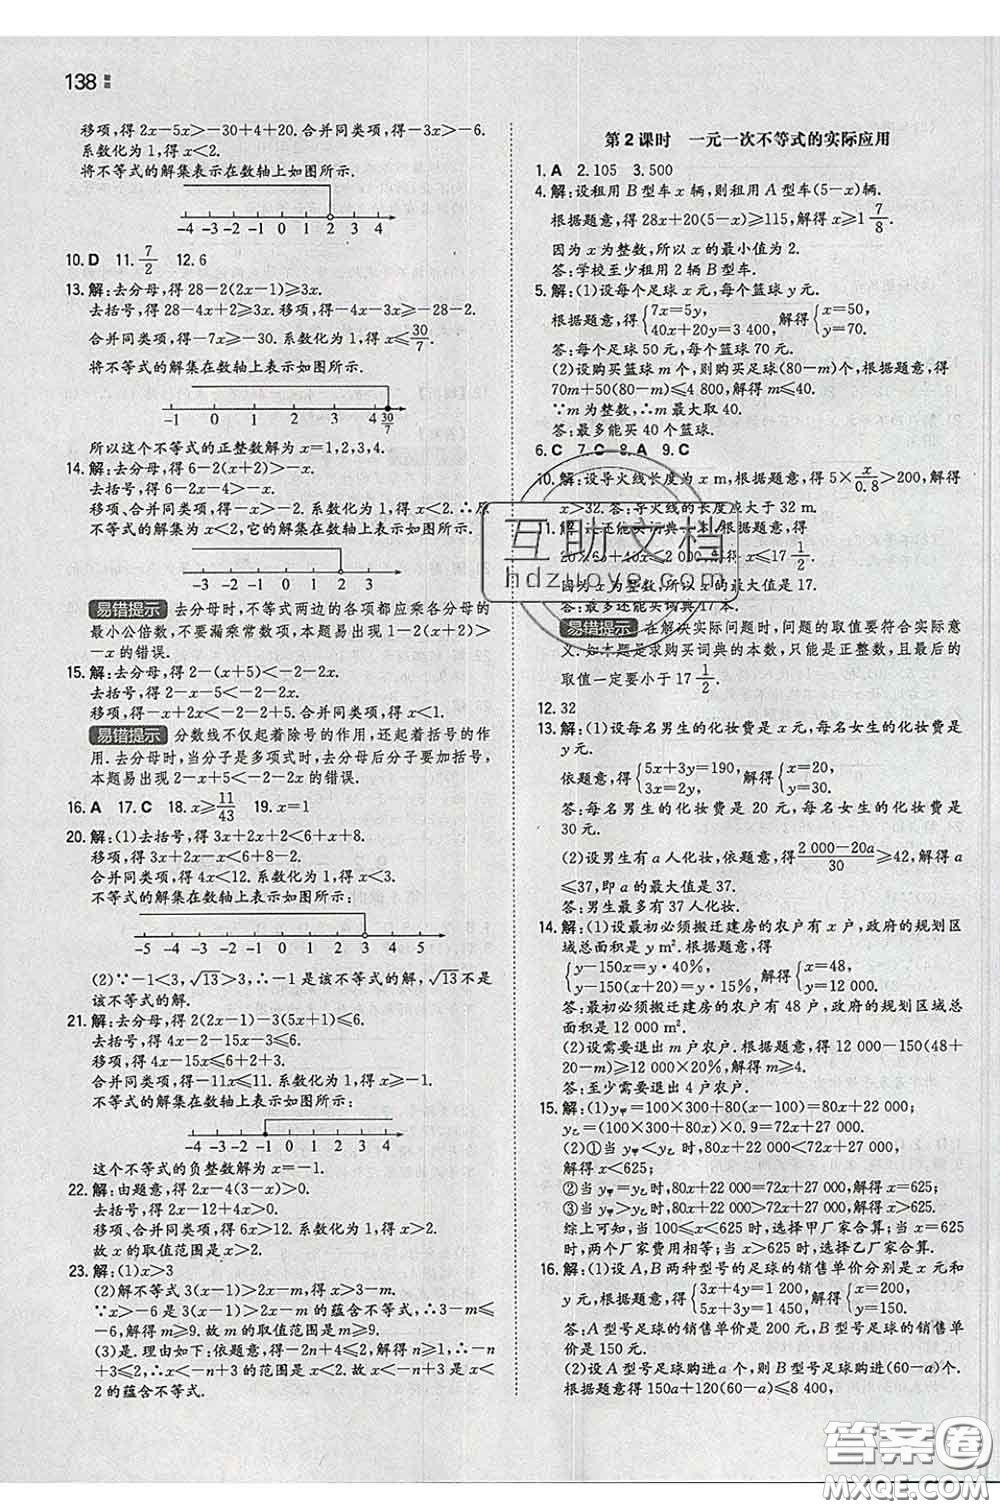 138
移项,得 2x-5x>-30+4+20. 合并同类项,得-3x>-6.
系数化为 1,得 x<2.
将不等式的解集表示在数轴上如图所示.
-4 -3 -2 -1 0 1 2 3 4
10. D 11. 7/2 12. 6
13. 解:去分母,得 28-2(2x-1)≥3x.
去括号,得 28-4x+2≥3x. 移项,得-4x-3x≥-28-2.
合并同类项,得-7x≥-30. 系数化为 1,得 x≤30/7.
将不等式的解集在数轴上表示如图所示.
-1 0 1 2 3 4 30/7
所以这个不等式的正整数解为 x=1,2,3,4.
14. 解:去分母,得 6-2(x+2)>-x.
去括号,得 6-2x-4>-x.
移项、合并同类项,得-x>-2. 系数化为 1,得 x<2. ∴原
不等式的解集为 x<2,它的解集在数轴上表示如图所示.
-3 -2 -1 0 1 2 3
易错提示 去分母时,不等式两边的各项都应乘各分母的
最小公倍数,不要漏乘常数项,本题易出现 1-2(x+2)>
-x 的错误.
15. 解:去分母,得 2-(x+5)<-2-2x.
去括号,得 2-x-5<-2-2x.
移项,得-x+2x<-2-2+5. 合并同类项,得 x<1.
易错提示 分数线不仅起着除号的作用,还起着括号的作
用. 去分母时,当分子是多项式时,去分母后分子要加括号,
本题易出现 2-x+5<-2-2x 的错误.
16. A 17. C 18. x≥11/43 19. x=1
20. 解:(1)去括号,得 3x+2x+2<6+x+8.
移项,得 3x+2x-x<6+8-2.
合并同类项,得 4x<12. 系数化为 1,得 x<3.
不等式的解集在数轴上表示如图所示:
-5 -4 -3 -2 -1 0 1 2 3 4 5
(2)∵-1<3,√13>3,∴-1 是该不等式的解,√13不是
该不等式的解.
21. 解:去分母,得 2(2x-1)-3(5x+1)≤6.
去括号,得 4x-2-15x-3≤6.
移项,得 4x-15x≤6+2+3.
合并同类项,得-11x≤11. 系数化为 1,得 x≥-1.
不等式的解集在数轴上表示如图所示:
-4 -3 -2 -1 0 1 2 3 4
这个不等式的负整数解为 x=-1.
22. 解:由题意,得 2x-4(3-x)>0.
去括号,得 2x-12+4x>0.
移项、合并同类项,得 6x>12. 系数化为 1,得 x>2.
故 x 的取值范围是 x>2.
23. 解:(1)x>3
(2)解不等式 3(x-1)>2x-m,得 x>3-m.
∵x>-6 是 3(x-1)>2x-m 的蕴含不等式,∴3-m≤
-6,即 m≥9. 故 m 的取值范围是 m≥9.
(3)是. 理由如下:依题意,得-2n+4≤2,解得 n≥1,∴-n
+3≤2,∴x<-n+3 的范围含于 x<2. 故 x<-n+3 是 x<
2 的蕴含不等式.
第 2 课时 一元一次不等式的实际应用
1. A 2. 105 3. 500
4. 解:设租用 B 型车 x 辆,则租用 A 型车(5-x)辆.
根据题意,得 28x+20(5-x)≥115,解得 x≥1 7/8.
因为 x 为整数,所以 x 的最小值为 2.
答:学校至少租用 2 辆 B 型车.
5. 解:(1)设每个足球 x 元,每个篮球 y 元.
根据题意,得{7x=5y, 40x+20y=3 400, 解得{x=50, y=70.
答:每个足球 50 元,每个篮球 70 元.
(2)设购买篮球 m 个,则购买足球(80-m)个. 根据题意,得
70m+50(80-m)≤4 800,解得 m≤40.
∵m 为整数,∴m 最大取 40.
答:最多能买 40 个篮球.
6. C 7. C 8. A 9. C
10. 解:设导火线长度为 x m,根据题意,得 5×x/0.8>200,解得
x>32. 答:导火线的长度应大于 32 m.
11. 解:设还能买词典 x 本,根据题意,得
20×60+40x≤2 000,解得 x≤17 1/2.
因为 x 为整数,所以 x 的最大值是 17.
答:最多还能买词典 17 本.
易错提示 在解决实际问题时,问题的取值要符合实际意
义. 如本题是求购买词典的本数,只能是正整数,且最后的
取值一定要小于 17 1/2.
12. 32
13. 解:(1)设每名男生的化妆费是 x 元,每名女生的化妆费是
y 元.
依题意,得{5x+3y=190, 3x=2y, 解得{x=20, y=30.
答:每名男生的化妆费是 20 元,每名女生的化妆费是
30 元.
(2)设男生有 a 人化妆,依题意,得 2 000-20a/30≥42,解得 a
≤37,即 a 的最大值是 37.
答:男生最多有 37 人化妆.
14. 解:(1)设最初必须搬迁建房的农户有 x 户,政府的规划区
域总面积是 y m². 根据题意,得
{y-150x=y·40%, y-150(x+20)=y·15%, 解得{x=48, y=12 000.
答:最初必须搬迁建房的农户有 48 户,政府的规划区域总
面积是 12 000 m².
(2)设需要退出 m 户农户. 根据题意,得 12 000-150(48+
20-m)≥12 000×20%,解得 m≥4.
答:至少需要退出 4 户农户.
15. 解:(1)y甲=100×300+80(x-100)=80x+22 000,
y乙=(100×300+80x)×0.9=72x+27 000.
(2)①当 y甲<y乙时,80x+22 000<72x+27 000,
解得 x<625;
②当 y甲=y乙时,80x+22 000=72x+27 000,解得 x=625;
③当 y甲>y乙时,80x+22 000>72x+27 000,解得 x>625.
综上可知,当 100≤x<625 时,选择甲厂家合算;当 x=625
时,两个厂家费用一样;当 x>625 时,选择乙厂家合算.
16. 解:(1)设 A,B 两种型号的足球的销售单价分别是 x 元和
y 元,根据题意,得{3x+4y=1 200, 5x+3y=1 450, 解得{x=200, y=150.
答:A 型号足球的销售单价是 200 元,B 型号足球的销售单
价是 150 元.
(2)设 A 型号足球购进 a 个,则 B 型号足球购进(60-a)个.
根据题意,得 150a+120(60-a)≤8 400,
互助文档
hdzuoye.com
答案圈
MXQE.COM